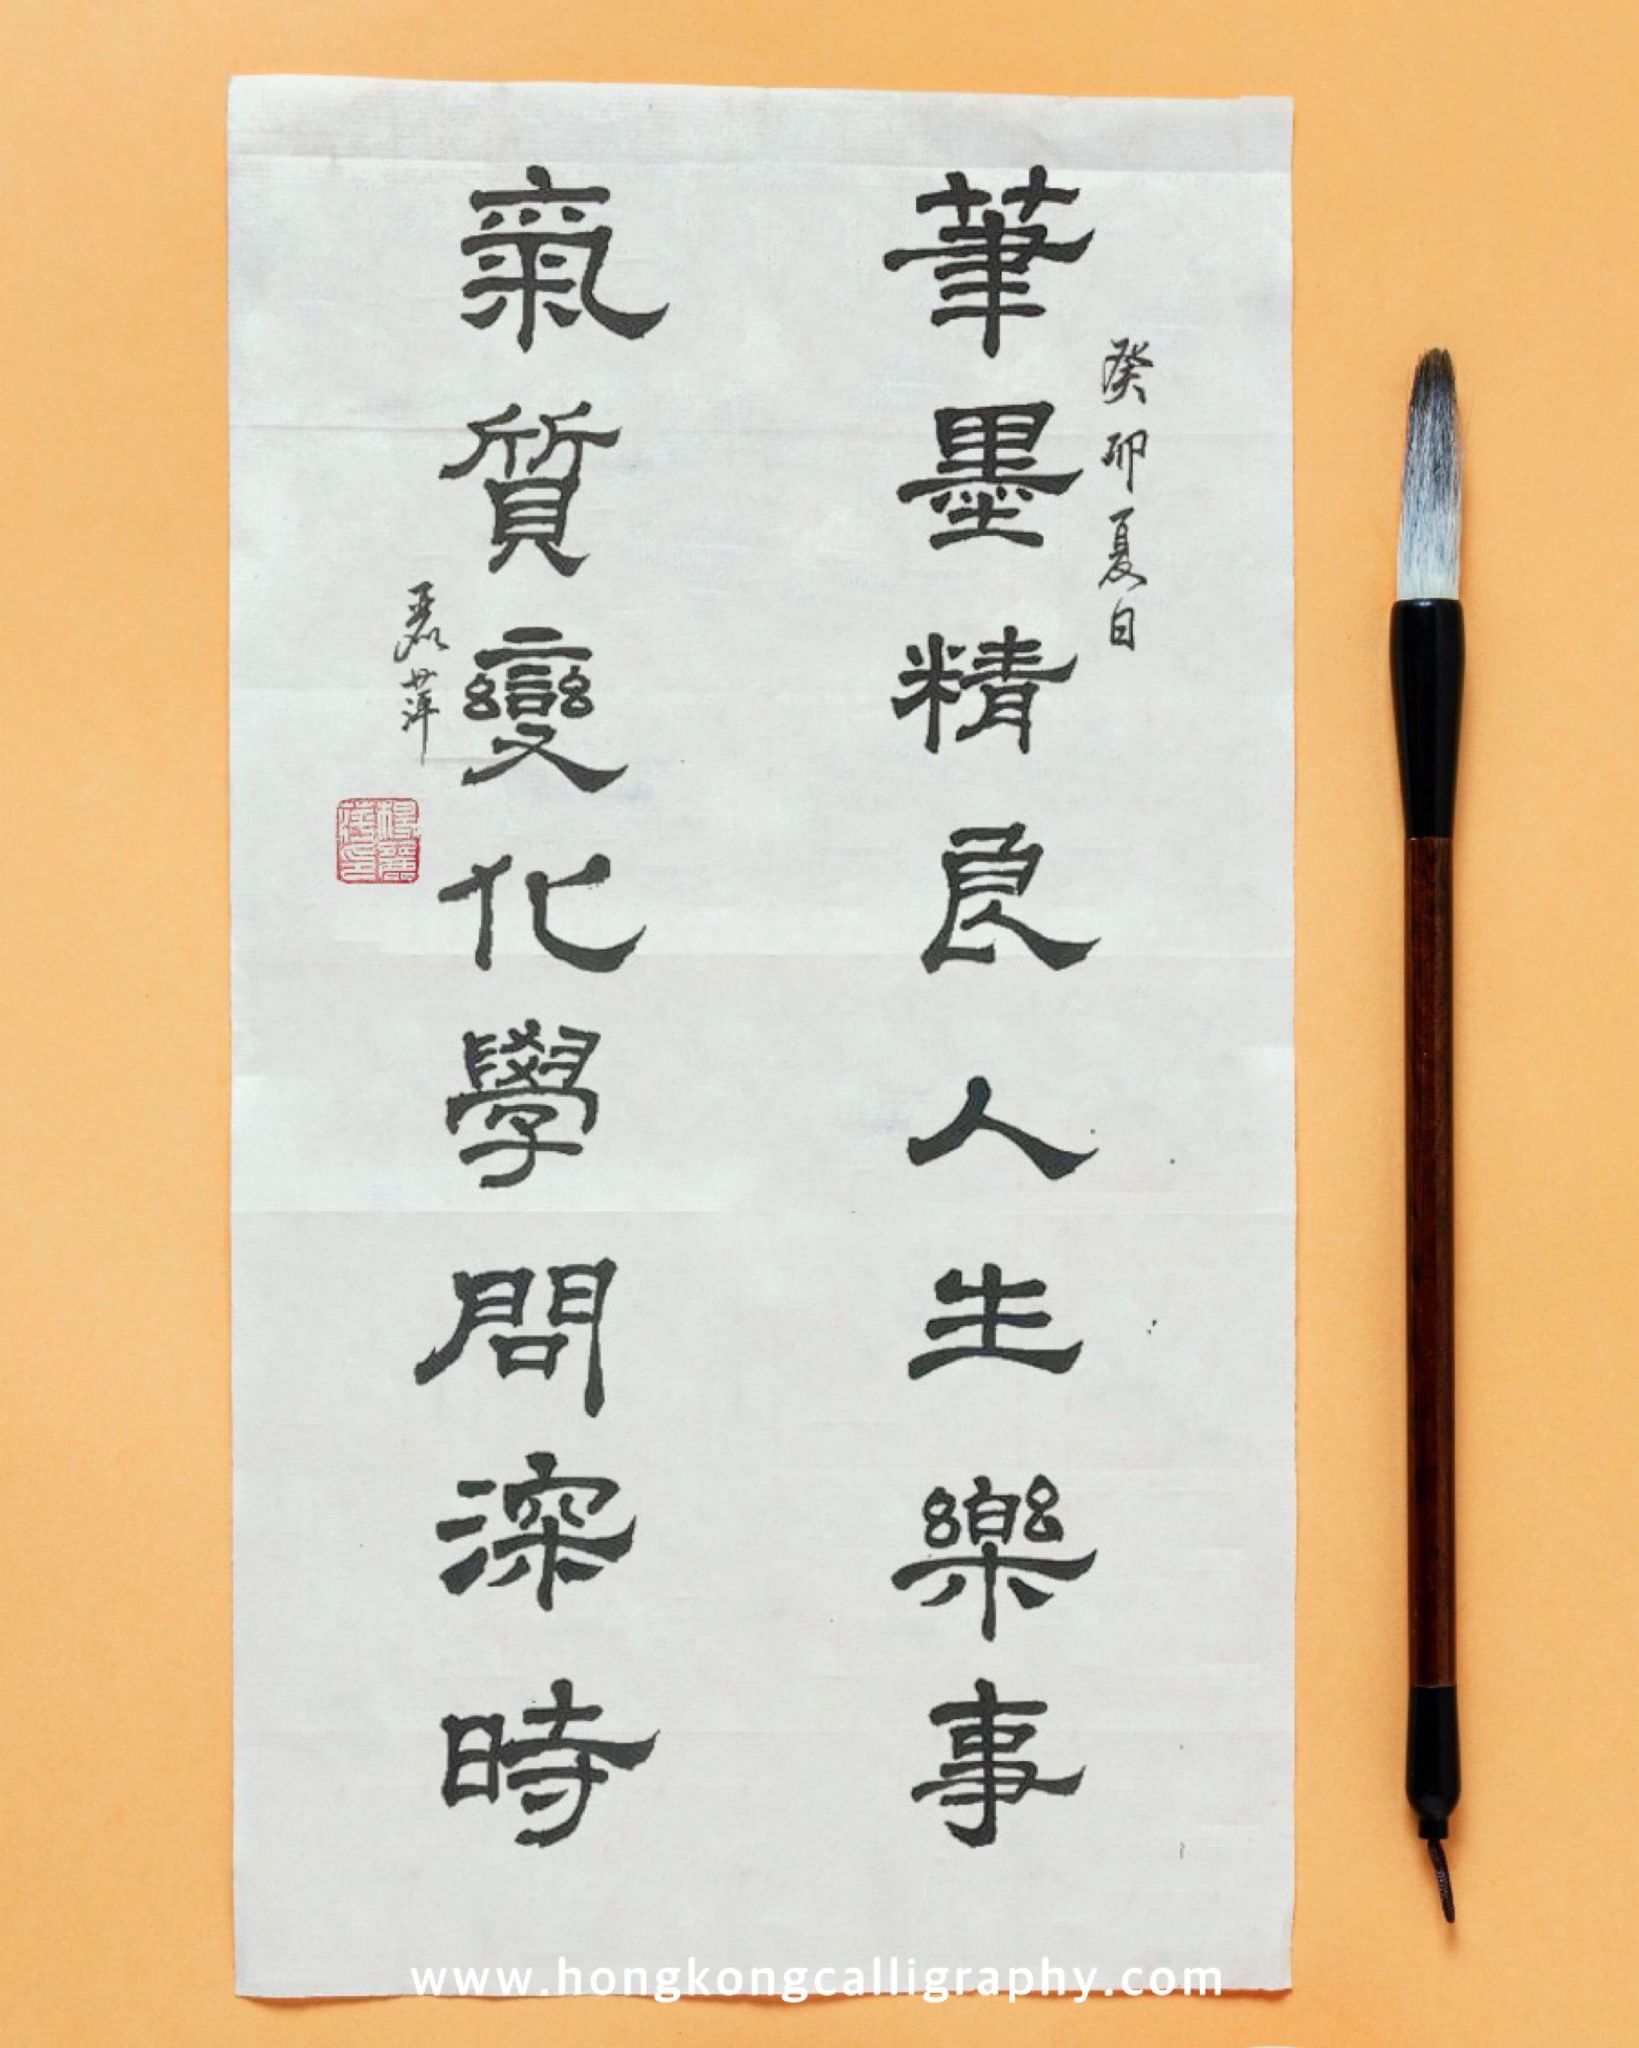 癸卯夏日
筆墨精良人生樂事
氣質變化學問深時
麗萍
www.hongkongcalligraphy.com